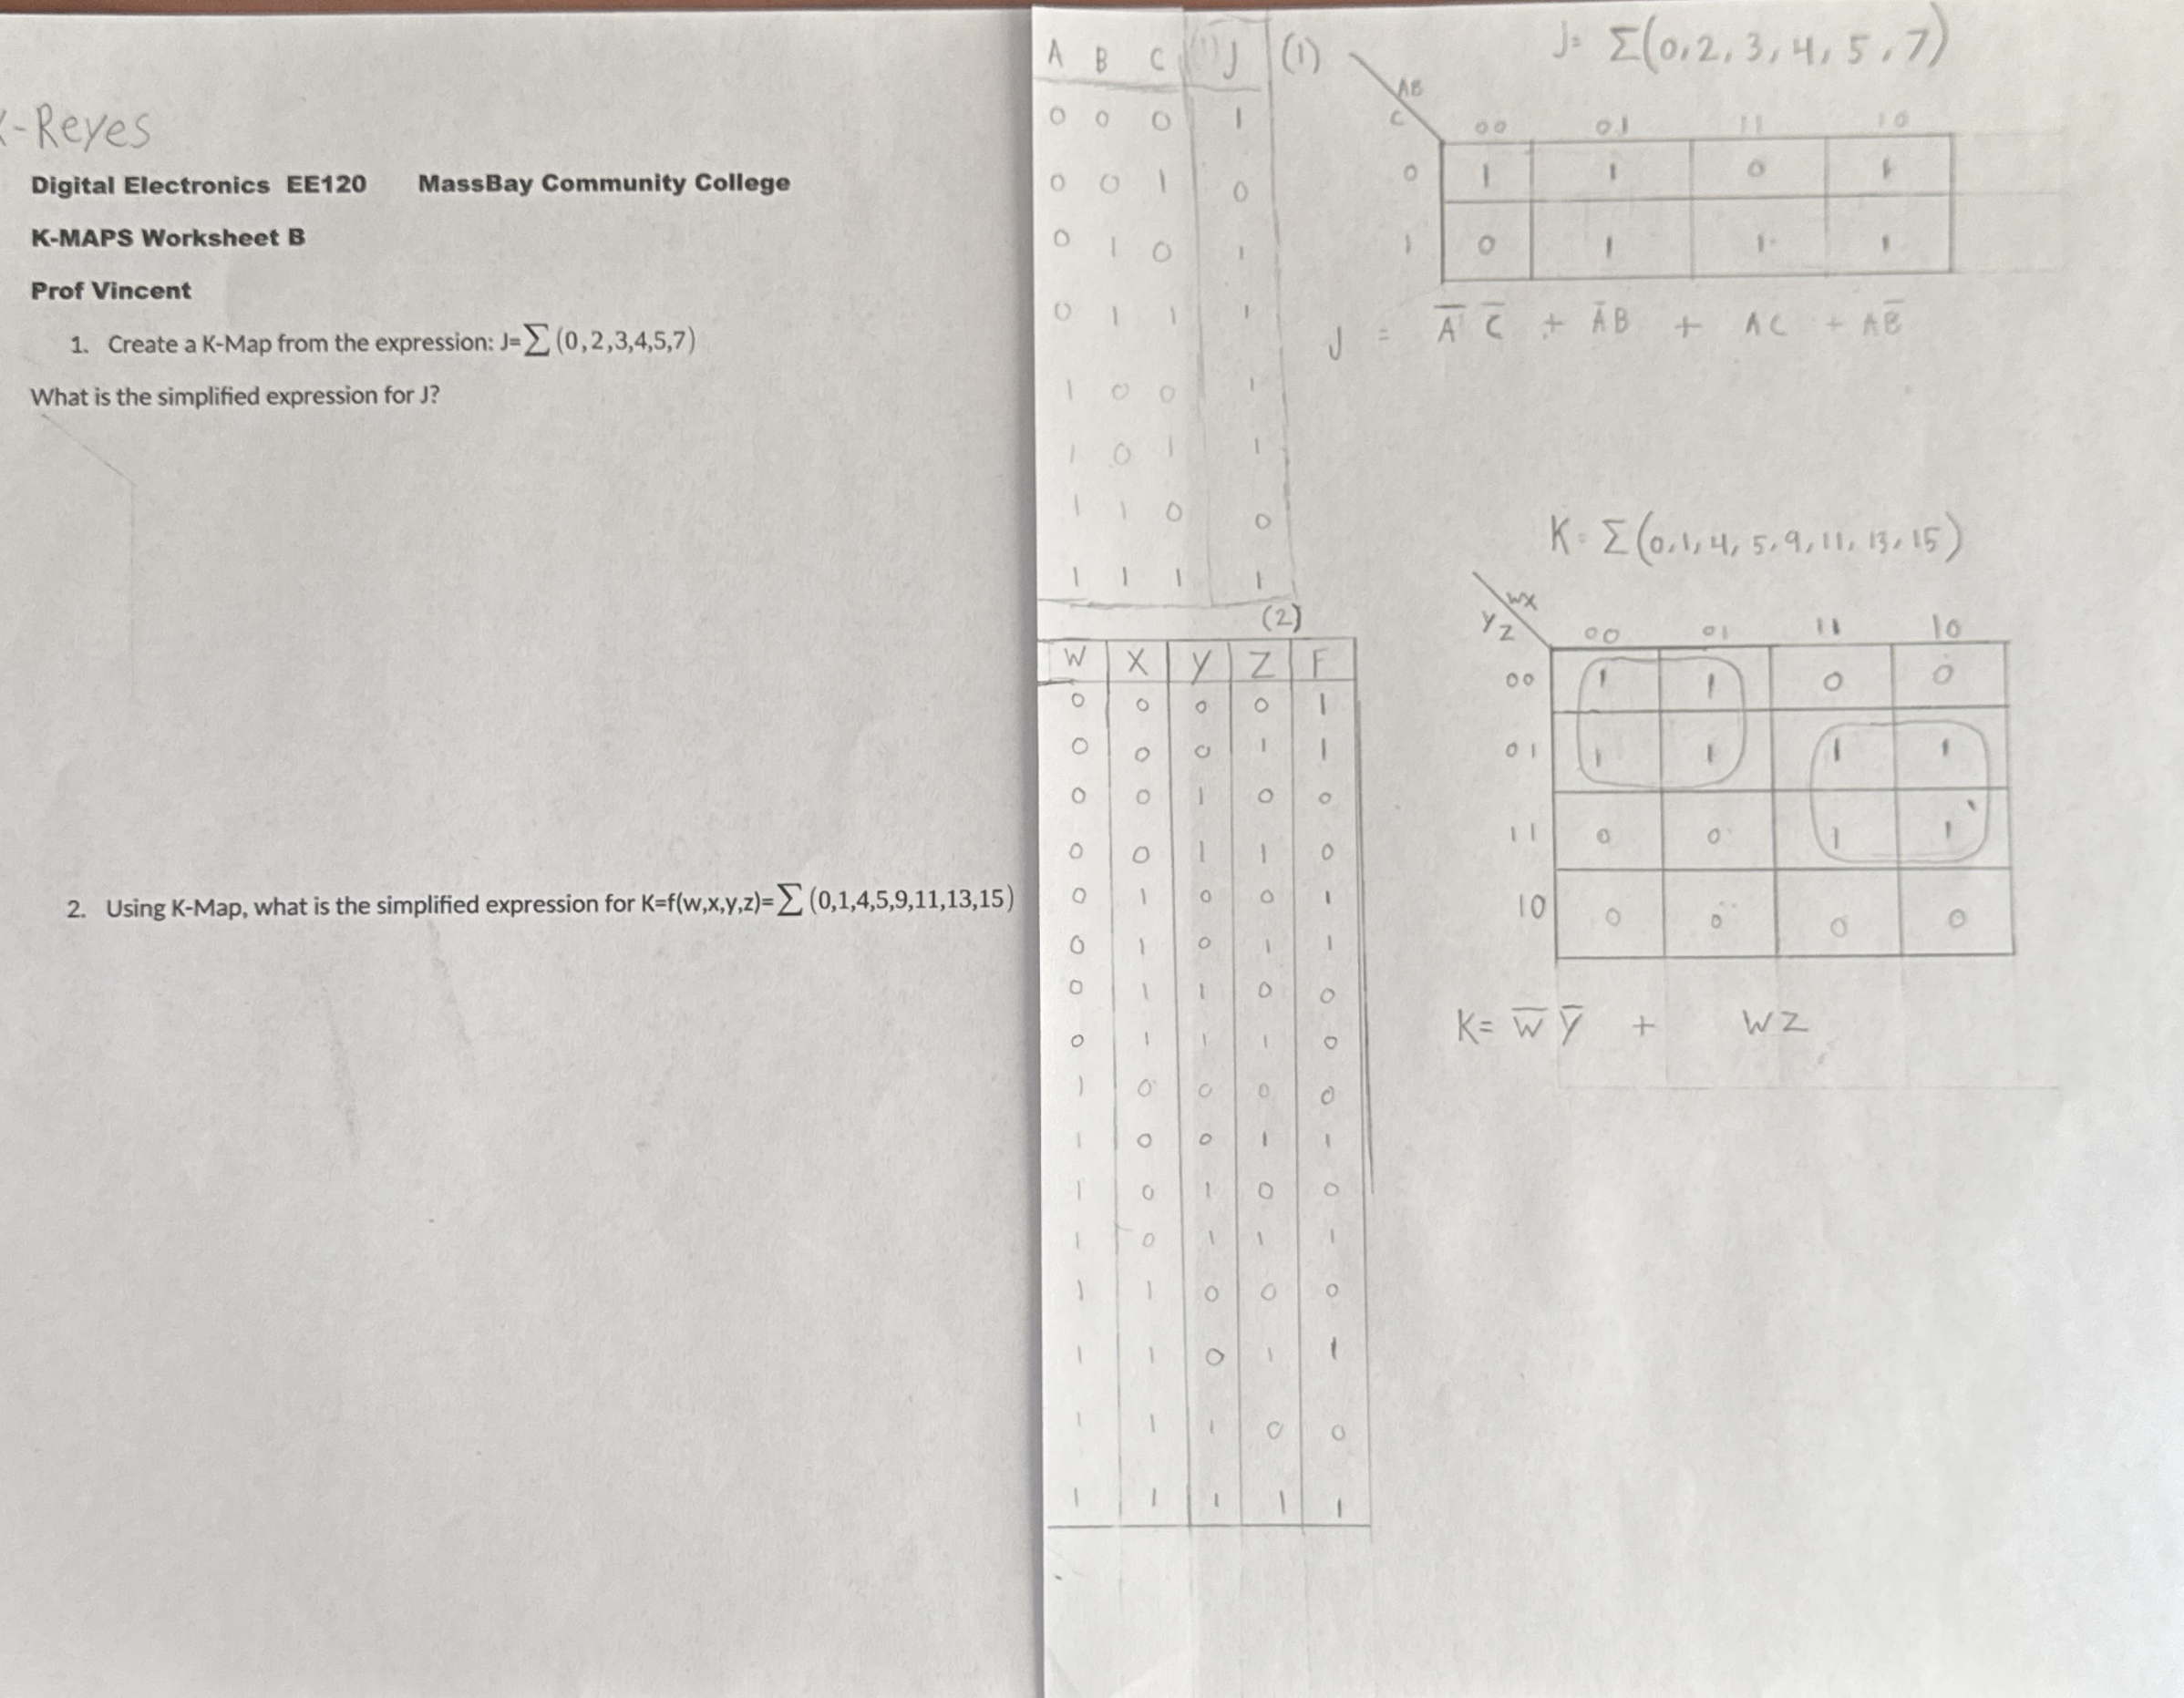 -Reyes
Digital Electronics EE120 MassBay Community College
K-MAPS Worksheet B
Prof Vincent
1. Create a K-Map from the expression: J=∑(0,2,3,4,5,7)
What is the simplified expression for J?
2. Using K-Map, what is the simplified expression for K=f(w,x,y,z)=∑(0,1,4,5,9,11,13,15)
A B C J
0 0 0 1
0 0 1 0
0 1 0 1
0 1 1 1
1 0 0 1
1 0 1 1
1 1 0 0
1 1 1 1
(1) J= Σ(0,2,3,4,5,7)
AB
C 00 01 11 10
0 1 1 0 1
1 0 1 1 1
J = A̅ C̅ + A̅B + AC + AB̅
(2)
W X Y Z F
0 0 0 0 1
0 0 0 1 1
0 0 1 0 0
0 0 1 1 0
0 1 0 0 1
0 1 0 1 1
0 1 1 0 0
0 1 1 1 0
1 0 0 0 0
1 0 0 1 1
1 0 1 0 0
1 0 1 1 1
1 1 0 0 0
1 1 0 1 1
1 1 1 0 0
1 1 1 1 1
K= Σ(0,1,4,5,9,11,13,15)
WX
YZ 00 01 11 10
00 1 1 0 0
01 1 1 1 1
11 0 0 1 1
10 0 0 0 0
K= W̅ Y̅ + WZ